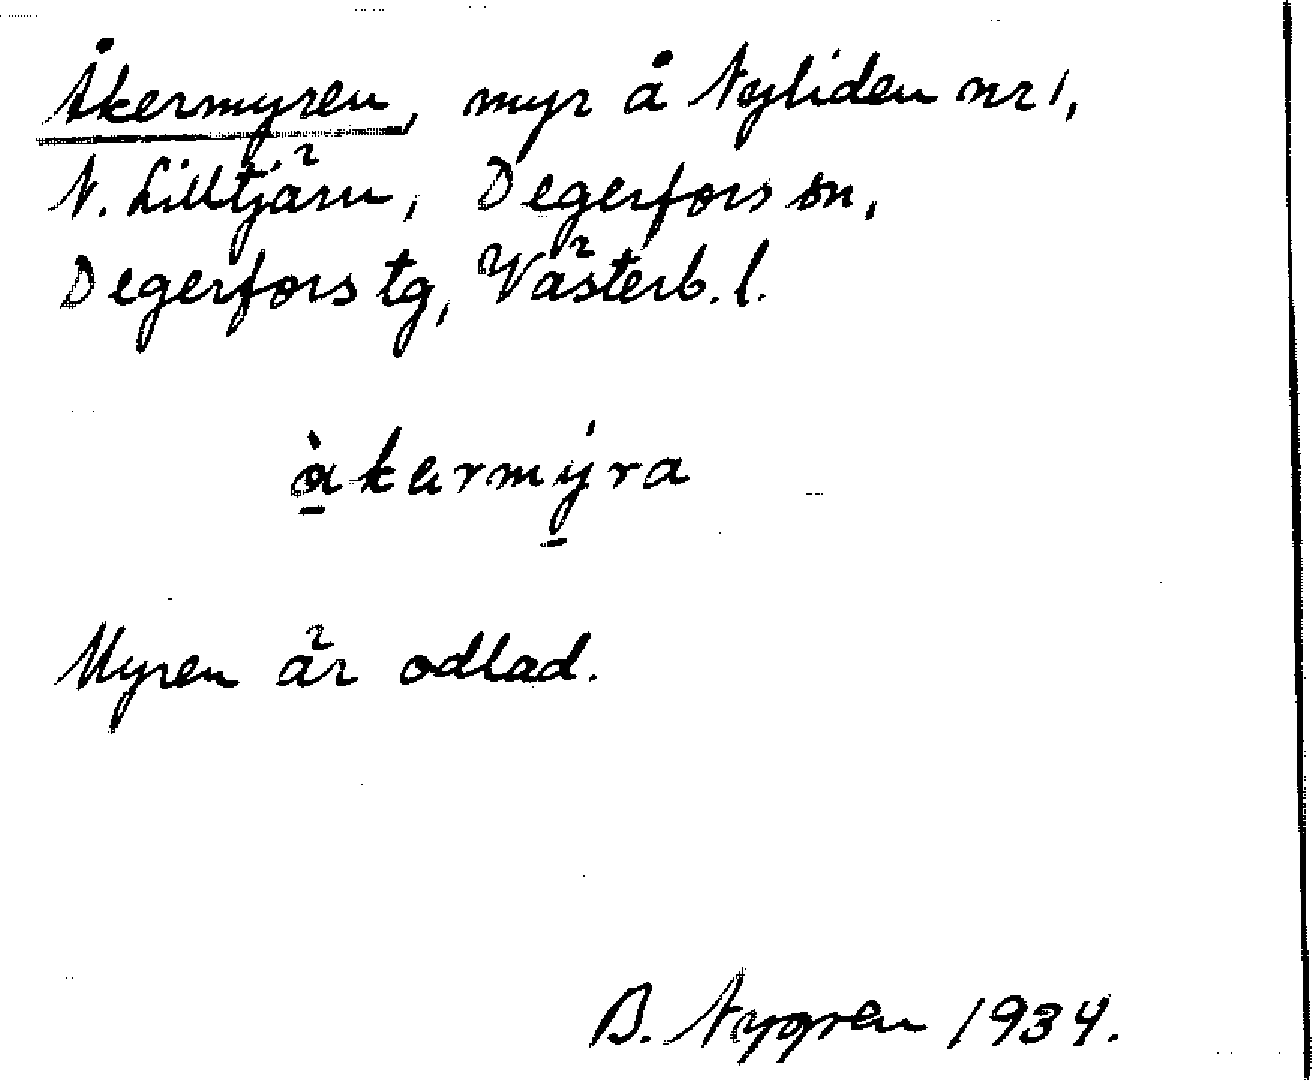 Åkermyren, myr å Nyliden nr 1,
N. Lilltjärn, Degerfors sn,
Degerfors tg, Västerb. l.
àkermýra
Myren är odlad.
B. Nygren 1934.